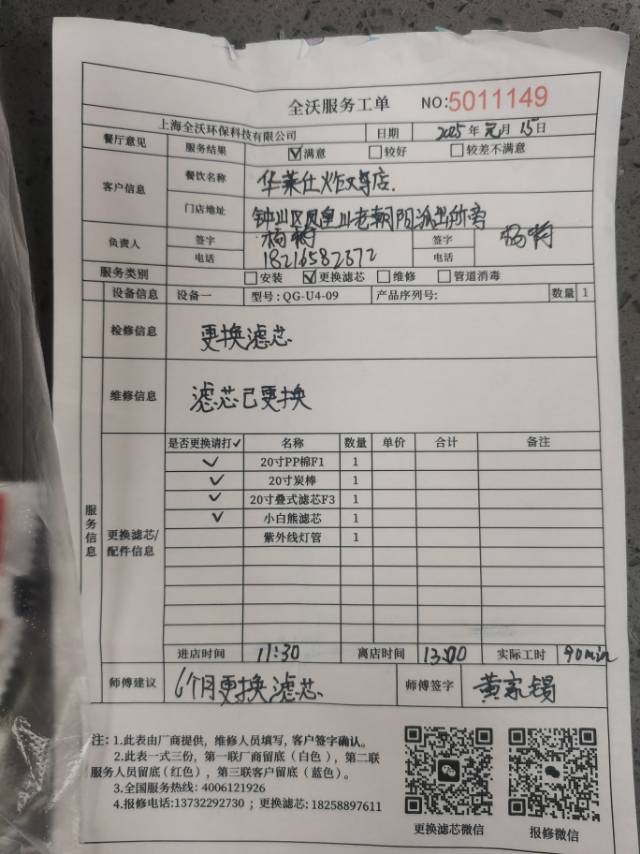 全沃服务工单 NO:5011149
上海全沃环保科技有限公司 日期 2025年元月15日
餐厅意见 服务结果 ☑满意 □较好 □较差不满意
客户信息 餐饮名称 华莱仕炸鸡店.
门店地址 钟山区凤凰山老朝阳派出所旁
负责人 签字 杨 签字 杨
电话 18216582372 电话
服务类别 □安装 ☑更换滤芯 □维修 □管道消毒
设备信息 设备一 型号:QG-U4-09 产品序列号: 数量 1
检修信息 更换滤芯
维修信息 滤芯已更换
服务信息
更换滤芯/配件信息
是否更换请打✓ 名称 数量 单价 合计 备注
✓ 20寸PP棉F1 1
✓ 20寸炭棒 1
✓ 20寸叠式滤芯F3 1
✓ 小白熊滤芯 1
紫外线灯管 1
进店时间 11:30 离店时间 13:00 实际工时 90min
师傅建议 6个月更换滤芯 师傅签字 黄家锡
注:1.此表由厂商提供,维修人员填写,客户签字确认。
2.此表一式三份,第一联厂商留底(白色),第二联
服务人员留底(红色),第三联客户留底(蓝色)。
3.全国服务热线:4006121926
4.报修电话:13732292730;更换滤芯:18258897611
更换滤芯微信 报修微信